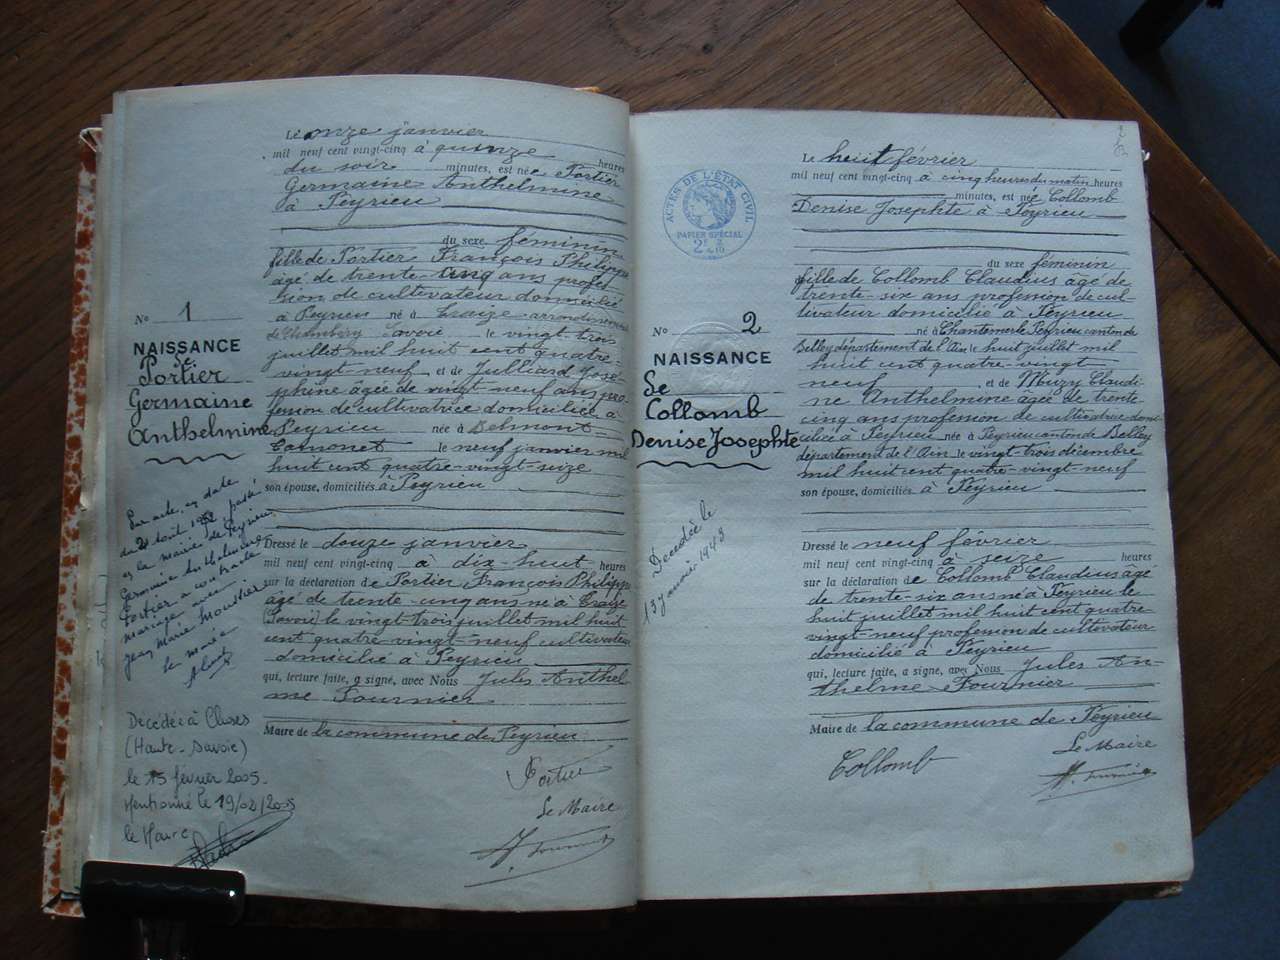 Le onze janvier
mil neuf cent vingt-cinq à quinze heures
du soir minutes, est née Portier
Germaine Anthelmine
à Peyrieu
du sexe féminin
fille de Portier François Philippe
âgé de trente-cinq ans profes-
sion de cultivateur domicilié
à Peyrieu né à Traize arrondissement
de Chambéry Savoie le vingt-trois
juillet mil huit cent quatre-
vingt-neuf, et de Julliard José-
phine âgée de vingt-neuf ans pro-
fession de cultivatrice domiciliée à
Peyrieu née à Belmont-
Tramonet le neuf janvier mil
huit cent quatre-vingt-seize
son épouse, domiciliés à Peyrieu
Dressé le douze janvier
mil neuf cent vingt-cinq à dix-huit heures
sur la déclaration de Portier François Philippe
âgé de trente-cinq ans né à Traize
(Savoie) le vingt-trois juillet mil huit
cent quatre-vingt-neuf cultivateur
domicilié à Peyrieu
qui, lecture faite, a signé, avec Nous Jules Anthel-
me Fournier
Maire de la commune de Peyrieu
Portier
Le Maire
J. Fournier
No 1
NAISSANCE
De
Portier
Germaine
Anthelmine
Par acte en date
du août passé
en la mairie de Peyrieu
Germaine Anthelmine
Portier a contracté
mariage avec
Jean Marie Moustier
le maire
Décédée à Cluses
(Haute-Savoie)
le 15 février 2005.
Mentionné le 19/02/2005
le Maire
ACTES DE L'ÉTAT CIVIL
PAPIER SPÉCIAL
No 2
NAISSANCE
De
Collomb
Denise Josephte
Décédée le
13 janvier 1943
Le huit février
mil neuf cent vingt-cinq à cinq heures du matin heures
minutes, est née Collomb
Denise Josephte à Peyrieu
du sexe féminin
fille de Collomb Claudius âgé de
trente-six ans profession de cul-
tivateur domicilié à Peyrieu
né à Chantemerle Peyrieu canton de
Belley département de l'Ain le huit juillet mil
huit cent quatre-vingt
neuf, et de Muzy Claudi-
ne Anthelmine âgée de trente-
cinq ans profession de cultivatrice domi-
ciliée à Peyrieu née à Peyrieu canton de Belley
département de l'Ain le vingt-trois décembre
mil huit cent quatre-vingt-neuf
son épouse, domiciliés à Peyrieu
Dressé le neuf février
mil neuf cent vingt-cinq à seize heures
sur la déclaration de Collomb Claudius âgé
de trente-six ans né à Peyrieu le
huit juillet mil huit cent quatre-
vingt-neuf profession de cultivateur
domicilié à Peyrieu
qui, lecture faite, a signé, avec Nous Jules An-
thelme Fournier
Maire de la commune de Peyrieu
Collomb
Le Maire
J. Fournier